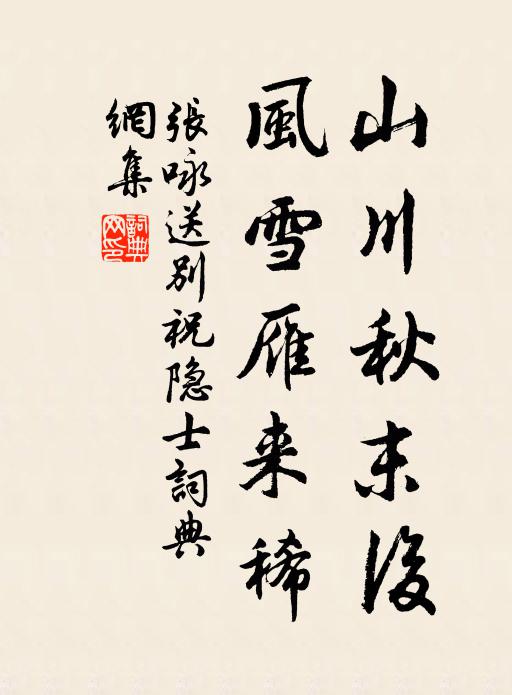 山川秋末後
風雪雁来稀
張咏送别祝隐士詞典
網集
詞典
网印